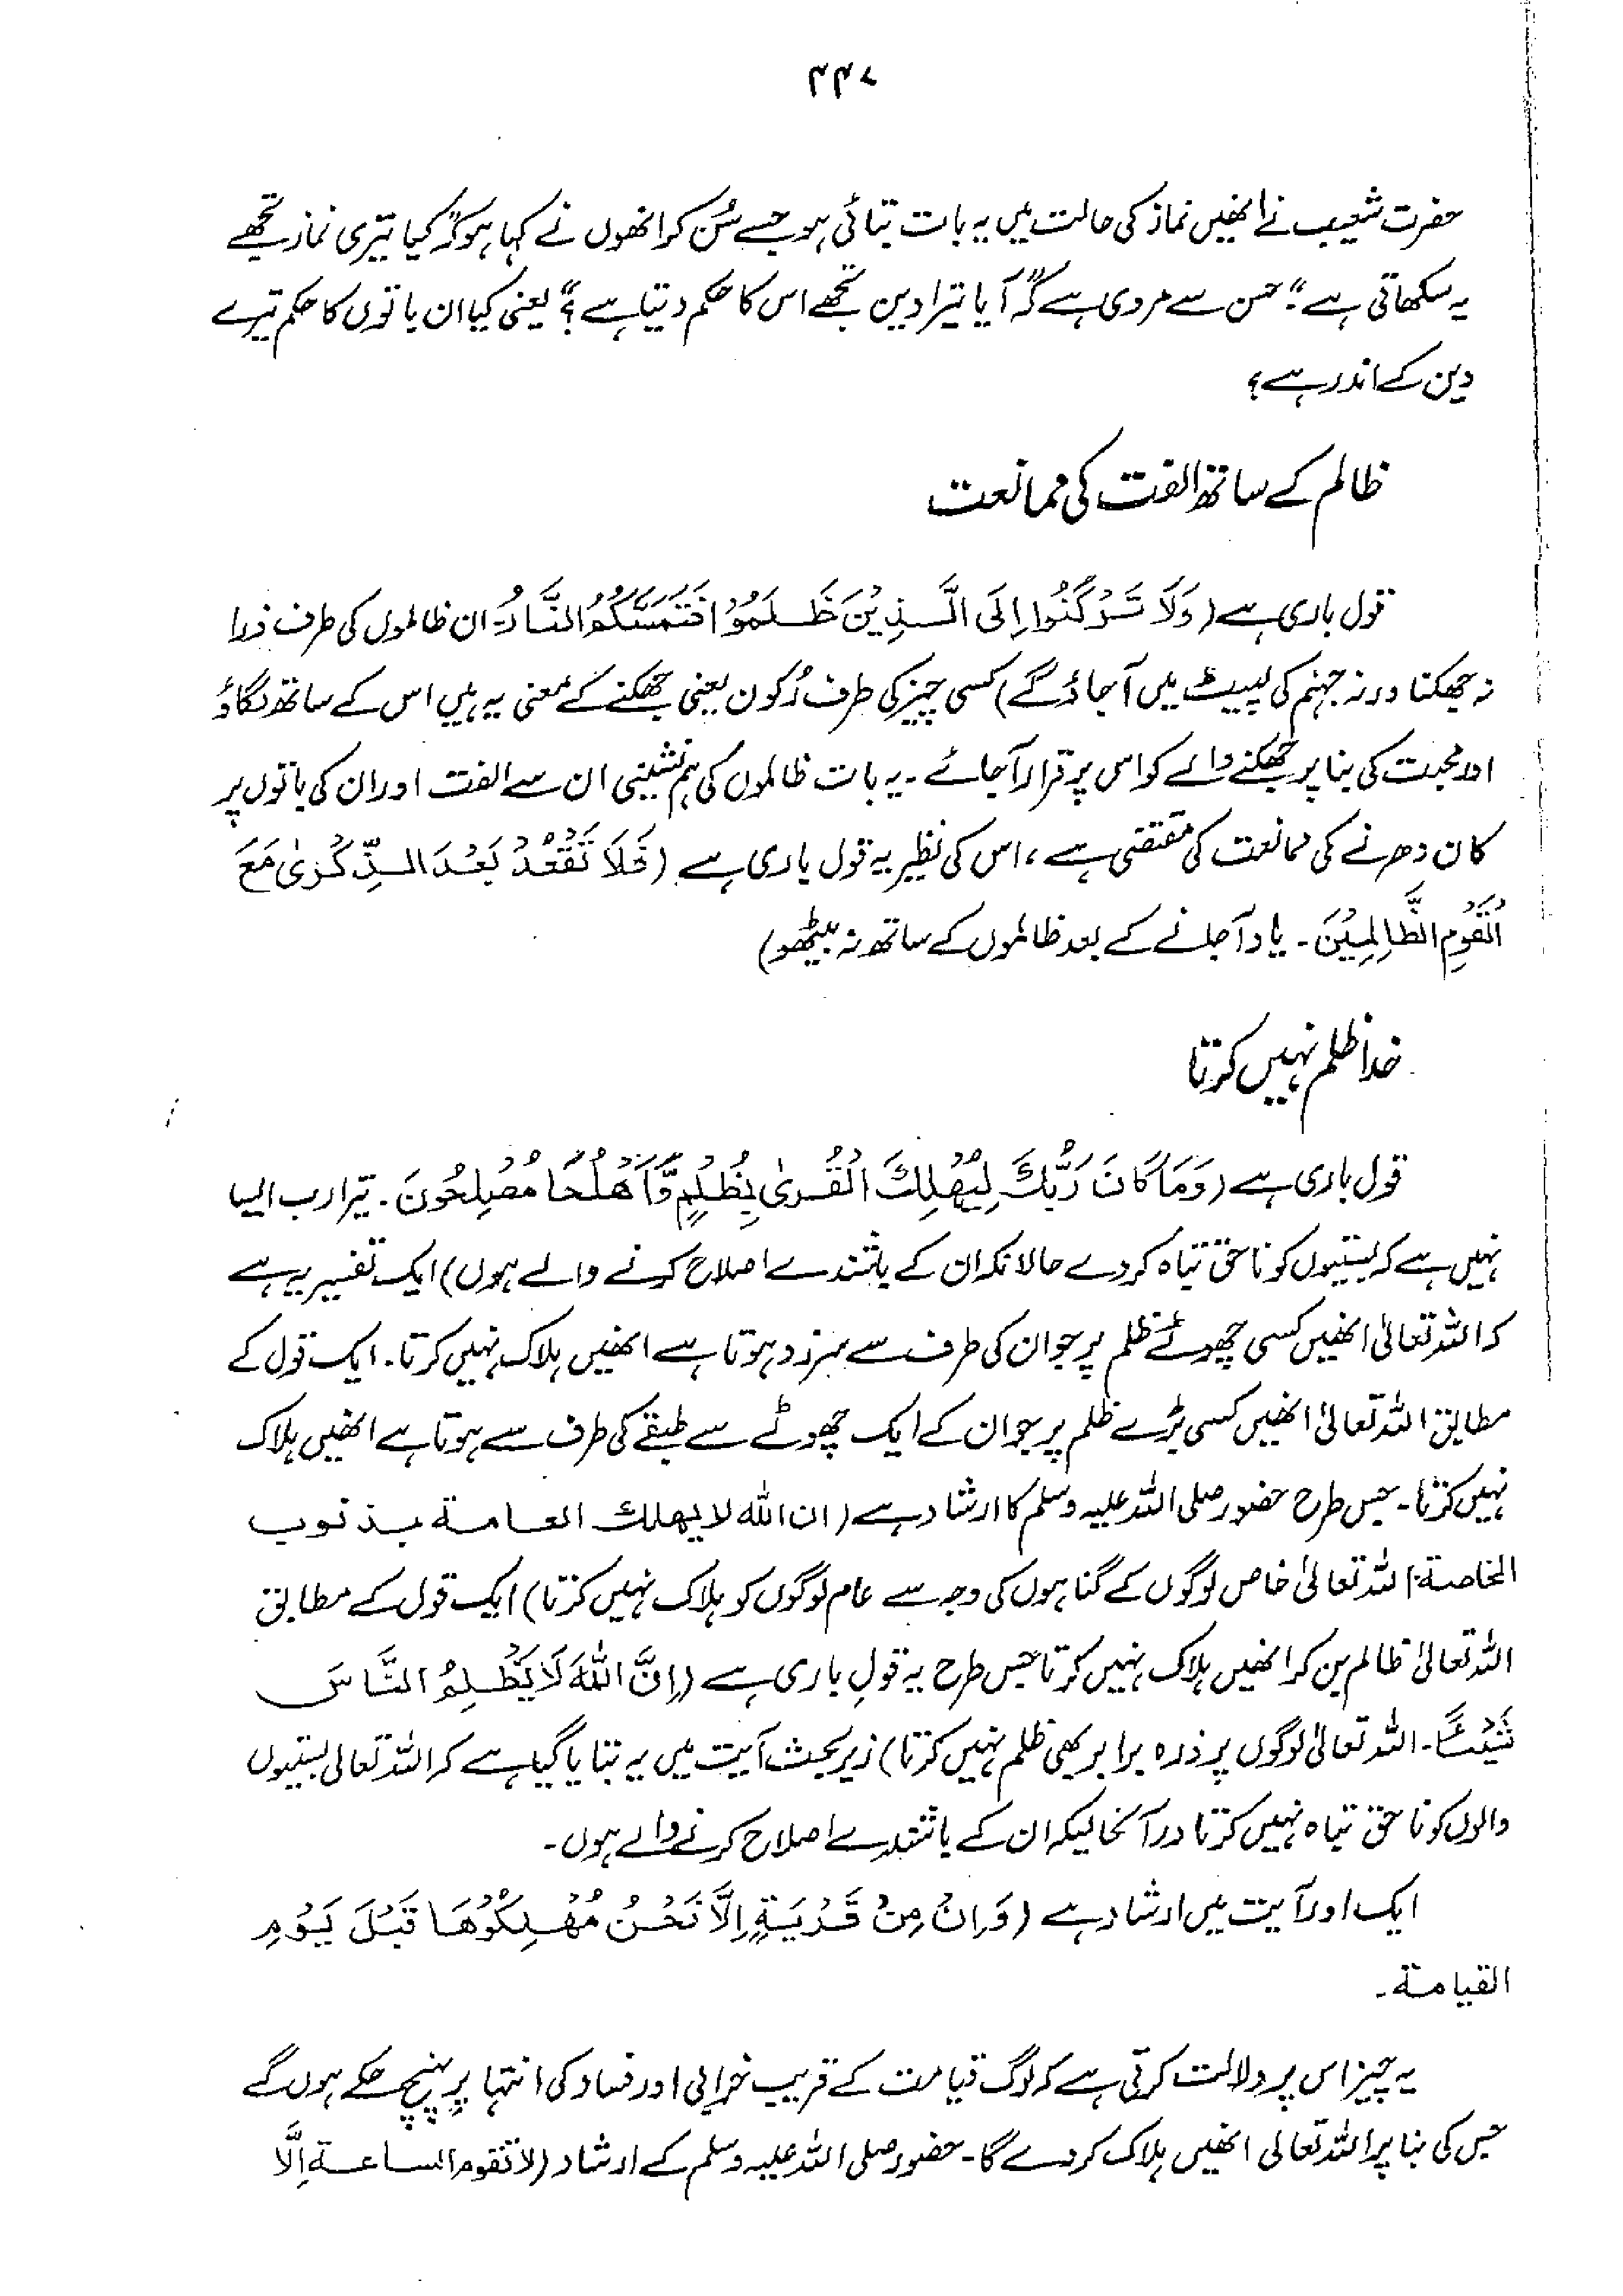 ۴۴۷
حضرت شعیب نے انھیں نماز کی حالت میں یہ بات بتائی ہو جسے سُن کر انھوں نے کہا ہو کہ "کیا تیری نماز تجھے
یہ سکھاتی ہے"؛ حسن سے مروی ہے کہ "آیا تیرا دین تجھے اس کا حکم دیتا ہے؟" یعنی کیا ان باتوں کا حکم تیرے
دین کے اندر ہے؟
ظالم کے ساتھ الفت کی ممانعت
قول باری ہے (وَلَا تَرْكَنُوا اِلَى الَّذِيْنَ ظَلَمُوْا فَتَمَسَّكُمُ النَّارُ۔ ان ظالموں کی طرف ذرا
نہ جھکنا ورنہ جہنم کی لپیٹ میں آجاؤ گے) کسی چیز کی طرف رُکون یعنی جھکنے کے معنی یہ ہیں اس کے ساتھ لگاؤ
اور محبت کی بنا پر جھکنے والے کو اس پر قرار آجائے۔ یہ بات ظالموں کی ہم نشینی ان سے الفت اور ان کی باتوں پر
کان دھرنے کی ممانعت کی مقتضی ہے، اس کی نظیر یہ قول باری ہے (فَلَا تَقْعُدْ بَعْدَ الذِّكْرٰى مَعَ
الْقَوْمِ الظَّالِمِيْنَ۔ یاد آجانے کے بعد ظالموں کے ساتھ نہ بیٹھو)
خدا ظلم نہیں کرتا
قول باری ہے (وَمَا كَانَ رَبُّكَ لِيُهْلِكَ الْقُرٰى بِظُلْمٍ وَّاَهْلُهَا مُصْلِحُوْنَ۔ تیرا رب ایسا
نہیں ہے کہ بستیوں کو ناحق تباہ کر دے حالانکہ ان کے باشندے اصلاح کرنے والے ہوں) ایک تفسیر یہ ہے
کہ اللہ تعالیٰ انھیں کسی چھوٹے ظلم پر جو ان کی طرف سے سرزد ہوتا ہے انھیں ہلاک نہیں کرتا۔ ایک قول کے
مطابق اللہ تعالیٰ انھیں کسی بڑے ظلم پر جو ان کے ایک چھوٹے سے طبقے کی طرف سے ہوتا ہے انھیں ہلاک
نہیں کرتا۔ جس طرح حضور صلی اللہ علیہ وسلم کا ارشاد ہے (ان الله لا يهلك العامة بذنوب
الخاصة؛ اللہ تعالیٰ خاص لوگوں کے گناہوں کی وجہ سے عام لوگوں کو ہلاک نہیں کرتا) ایک قول کے مطابق
اللہ تعالیٰ ظالم بن کر انھیں ہلاک نہیں کرتا جس طرح یہ قولِ باری ہے (اِنَّ اللّٰهَ لَا يَظْلِمُ النَّاسَ
شَيْئًا۔ اللہ تعالیٰ لوگوں پر ذرہ برابر بھی ظلم نہیں کرتا) زیر بحث آیت میں یہ بتایا گیا ہے کہ اللہ تعالیٰ بستیوں
والوں کو ناحق تباہ نہیں کرتا درآنحالیکہ ان کے باشندے اصلاح کرنے والے ہوں۔
ایک اور آیت میں ارشاد ہے (وَاِنْ مِنْ قَرْيَةٍ اِلَّا نَحْنُ مُهْلِكُوْهَا قَبْلَ يَوْمِ
القيامة۔
یہ چیز اس پر دلالت کرتی ہے کہ لوگ قیامت کے قریب خرابی اور فساد کی انتہا پر پہنچ چکے ہوں گے
جس کی بنا پر اللہ تعالیٰ انھیں ہلاک کر دے گا۔ حضور صلی اللہ علیہ وسلم کے ارشاد (لا تقوم الساعة اِلَّا